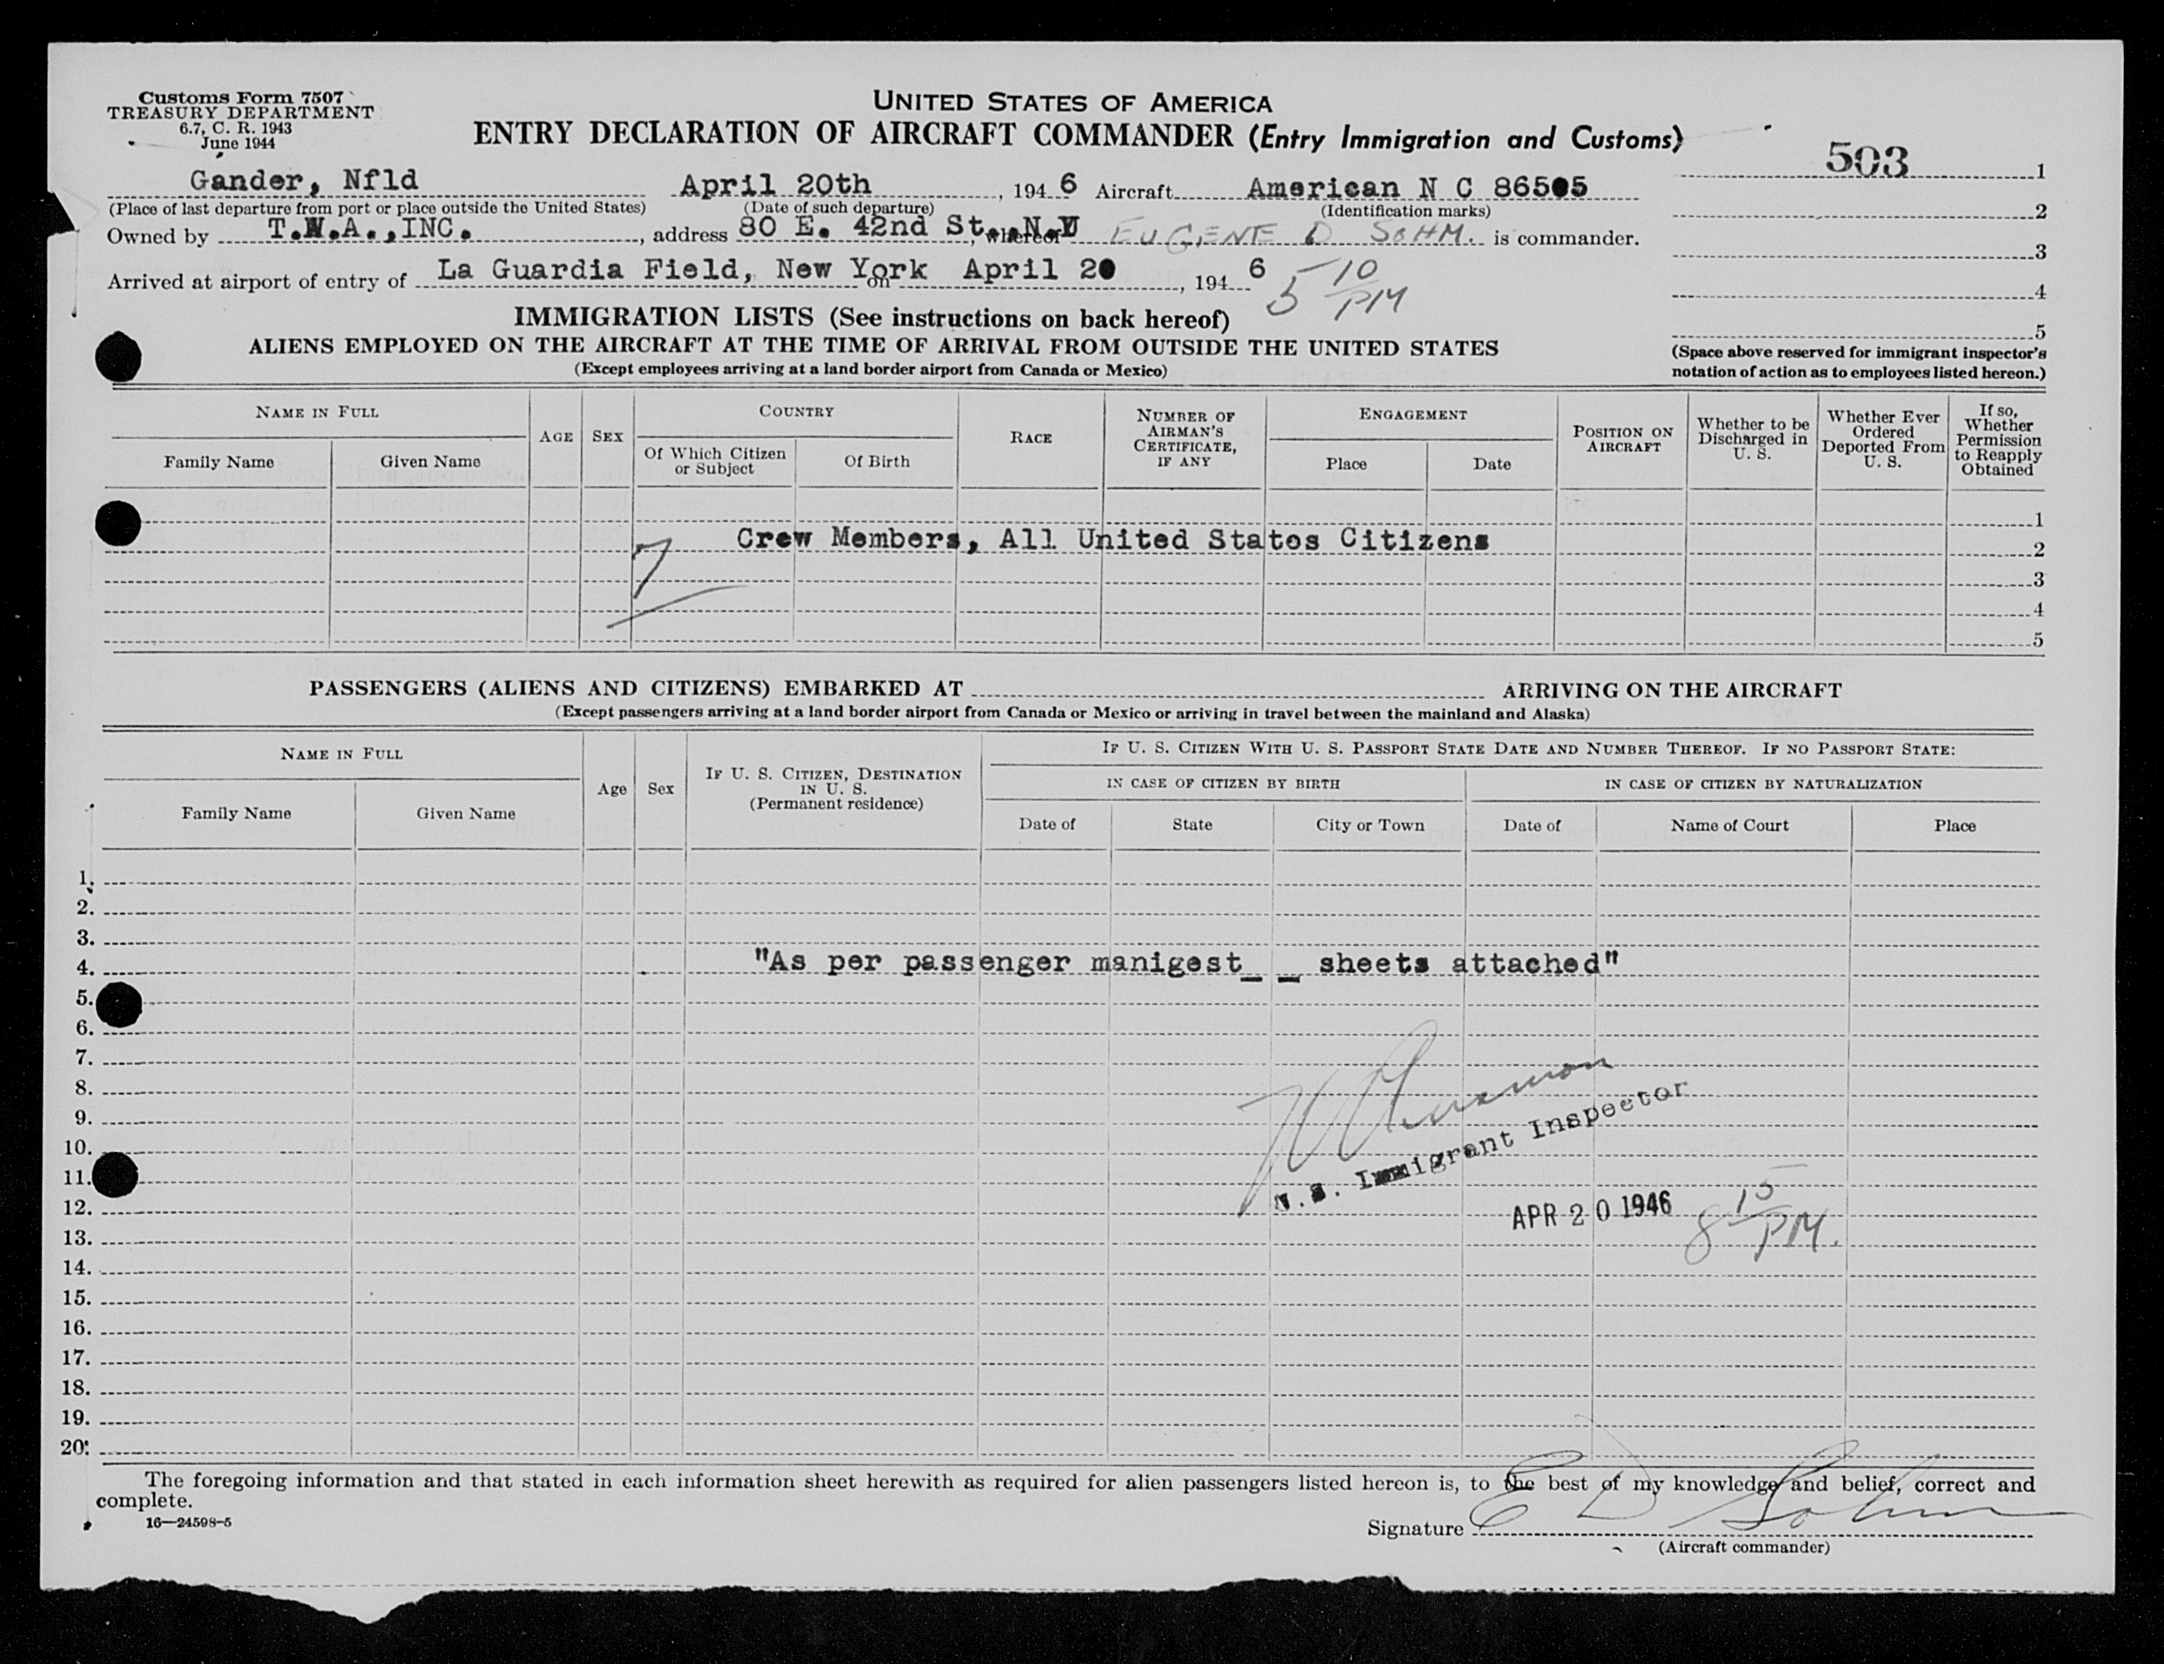 Customs Form 7507
TREASURY DEPARTMENT
6.7, C. R. 1943
June 1944
UNITED STATES OF AMERICA
ENTRY DECLARATION OF AIRCRAFT COMMANDER (Entry Immigration and Customs)
503 1
Gander, Nfld April 20th, 194 6 Aircraft American N C 86505
(Place of last departure from port or place outside the United States) (Date of such departure) (Identification marks)
2
Owned by T.W.A.,INC., address 80 E. 42nd St.,N.Y, whereof EUGENE D SOHM. is commander.
3
Arrived at airport of entry of La Guardia Field, New York on April 20, 194 6 5 10 PM
4
IMMIGRATION LISTS (See instructions on back hereof)
5
ALIENS EMPLOYED ON THE AIRCRAFT AT THE TIME OF ARRIVAL FROM OUTSIDE THE UNITED STATES
(Except employees arriving at a land border airport from Canada or Mexico)
(Space above reserved for immigrant inspector's
notation of action as to employees listed hereon.)
NAME IN FULL
Family Name Given Name
AGE SEX
COUNTRY
Of Which Citizen or Subject Of Birth
RACE
NUMBER OF AIRMAN'S CERTIFICATE, IF ANY
ENGAGEMENT
Place Date
POSITION ON AIRCRAFT
Whether to be Discharged in U. S.
Whether Ever Ordered Deported From U. S.
If so, Whether Permission to Reapply Obtained
1
7 Crew Members, All United States Citizens 2
3
4
5
PASSENGERS (ALIENS AND CITIZENS) EMBARKED AT ARRIVING ON THE AIRCRAFT
(Except passengers arriving at a land border airport from Canada or Mexico or arriving in travel between the mainland and Alaska)
NAME IN FULL
Family Name Given Name
Age Sex
IF U. S. CITIZEN, DESTINATION IN U. S.
(Permanent residence)
IF U. S. CITIZEN WITH U. S. PASSPORT STATE DATE AND NUMBER THEREOF. IF NO PASSPORT STATE:
IN CASE OF CITIZEN BY BIRTH IN CASE OF CITIZEN BY NATURALIZATION
Date of State City or Town Date of Name of Court Place
1.
2.
3.
4. "As per passenger manigest_ _ sheets attached"
5.
6.
7.
8.
9.
10.
11. U.S. Immigrant Inspector
12. APR 20 1946 8 15 PM.
13.
14.
15.
16.
17.
18.
19.
20.
The foregoing information and that stated in each information sheet herewith as required for alien passengers listed hereon is, to the best of my knowledge and belief, correct and
complete.
16—24598-5
Signature E D Sohm
(Aircraft commander)